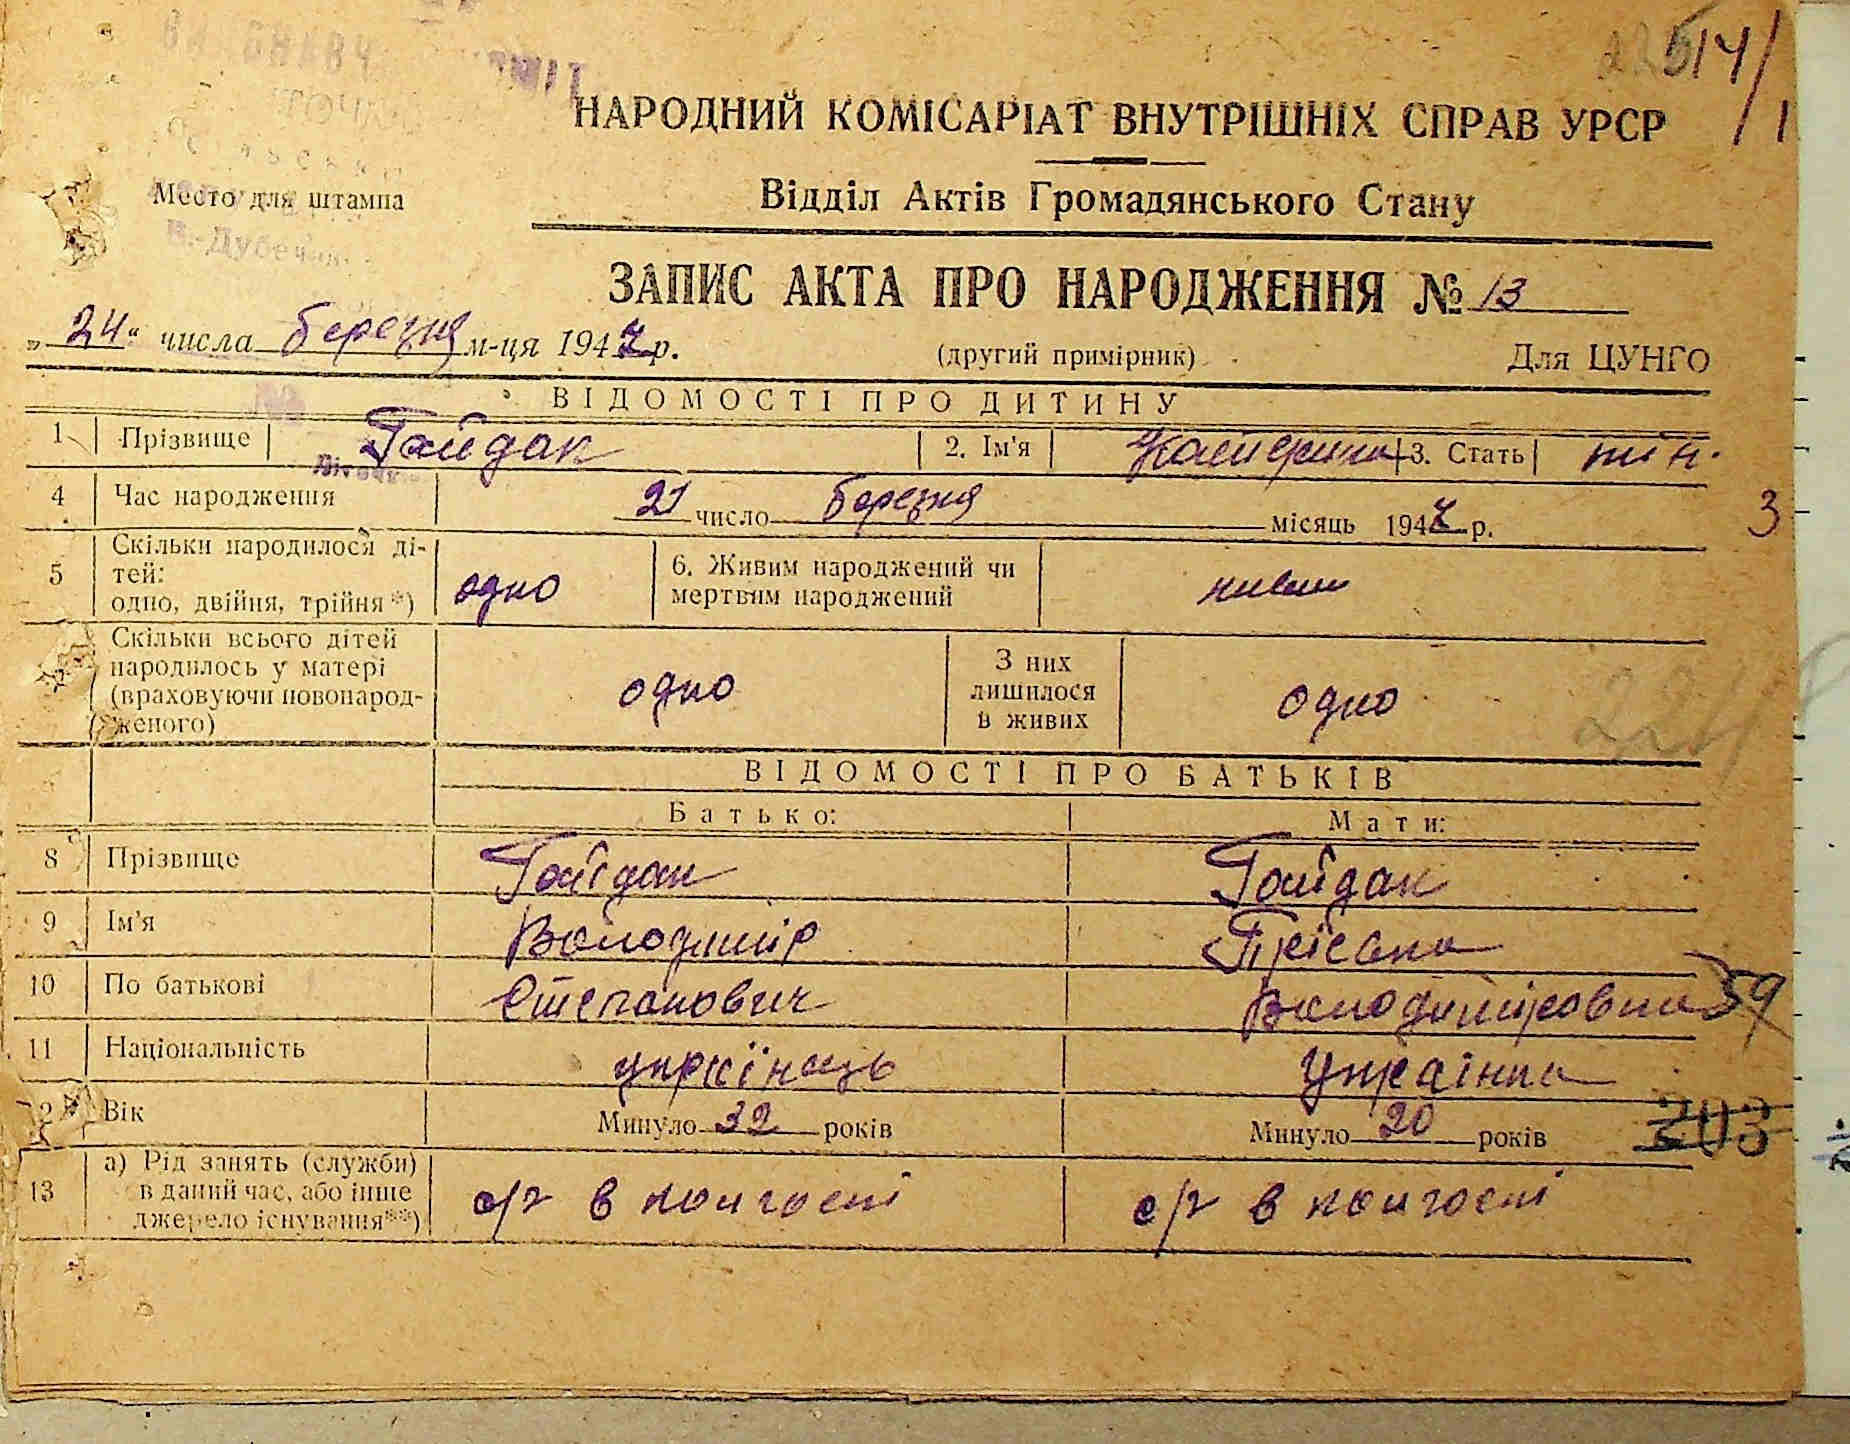 514/1
НАРОДНИЙ КОМІСАРІАТ ВНУТРІШНІХ СПРАВ УРСР
Место для штампа
Відділ Актів Громадянського Стану
ЗАПИС АКТА ПРО НАРОДЖЕННЯ № 13
„ 24 “ числа березня м-ця 1947 р. (другий примірник) Для ЦУНГО
ВІДОМОСТІ ПРО ДИТИНУ
1 Прізвище Гайдак 2. Ім'я Катерина 3. Стать жін.
4 Час народження 21 число березня місяць 1947 р.
3
5 Скільки народилося ді-
тей:
одно, двійня, трійня*) одно
6. Живим народжений чи
мертвим народжений живим
Скільки всього дітей
народилось у матері
(враховуючи новонарод-
женого) одно
З них
лишилося
в живих одно
ВІДОМОСТІ ПРО БАТЬКІВ
Батько: Мати:
8 Прізвище Гайдак Гайдак
9 Ім'я Володимір
10 По батькові Степанович Володиміровна
59
11 Національність українка
12 Вік Минуло 32 років Минуло 20 років
203
13 а) Рід занять (служби)
в даний час, або інше
джерело існування**) с/г в колгоспі с/г в колгоспі